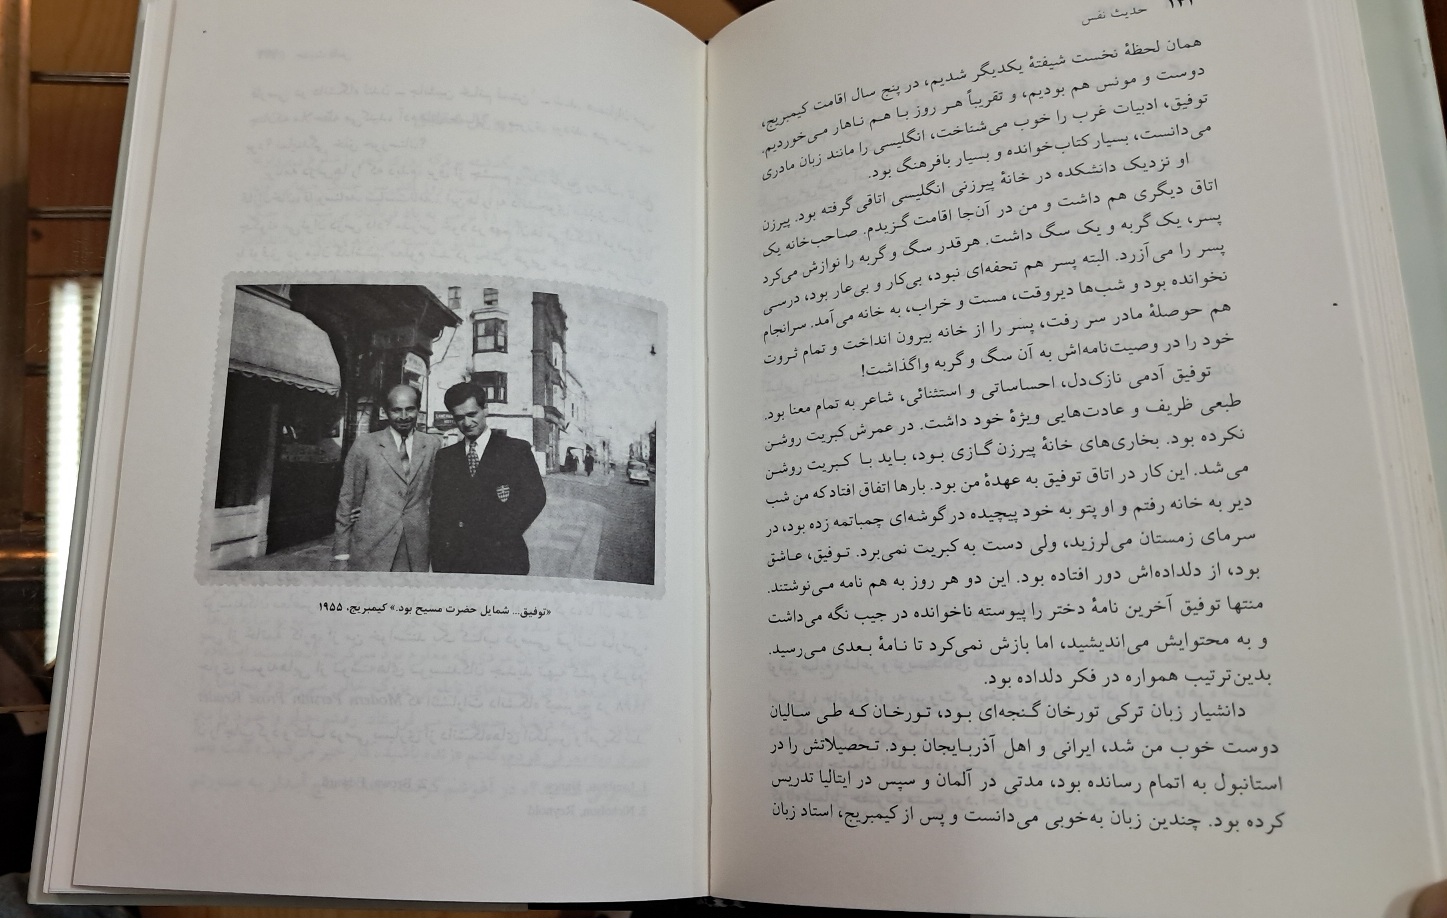 حدیث نفس
همان لحظهٔ نخست شیفتهٔ یکدیگر شدیم، در پنج سال اقامت کیمبریج،
دوست و مونس هم بودیم، و تقریباً هر روز با هم ناهار می‌خوردیم.
توفیق، ادبیات غرب را خوب می‌شناخت، انگلیسی را مانند زبان مادری
می‌دانست، بسیار کتاب‌خوانده و بسیار بافرهنگ بود.
او نزدیک دانشکده در خانهٔ پیرزنی انگلیسی اتاقی گرفته بود. پیرزن
اتاق دیگری هم داشت و من در آن‌جا اقامت گزیدم. صاحب‌خانه یک
پسر، یک گربه و یک سگ داشت. هرقدر سگ و گربه را نوازش می‌کرد
پسر را می‌آزرد. البته پسر هم تحفه‌ای نبود، بی‌کار و بی‌عار بود، درسی
نخوانده بود و شب‌ها دیروقت، مست و خراب، به خانه می‌آمد. سرانجام
هم حوصلهٔ مادر سر رفت، پسر را از خانه بیرون انداخت و تمام ثروت
خود را در وصیت‌نامه‌اش به آن سگ و گربه واگذاشت!
توفیق آدمی نازک‌دل، احساساتی و استثنائی، شاعر به تمام معنا بود.
طبعی ظریف و عادت‌هایی ویژهٔ خود داشت. در عمرش کبریت روشن
نکرده بود. بخاری‌های خانهٔ پیرزن گازی بود، باید با کبریت روشن
می‌شد. این کار در اتاق توفیق به عهدهٔ من بود. بارها اتفاق افتاد که من شب
دیر به خانه رفتم و او پتو به خود پیچیده در گوشه‌ای چمباتمه زده بود، در
سرمای زمستان می‌لرزید، ولی دست به کبریت نمی‌برد. توفیق، عاشق
بود، از دلداده‌اش دور افتاده بود. این دو هر روز به هم نامه می‌نوشتند.
منتها توفیق آخرین نامهٔ دختر را پیوسته ناخوانده در جیب نگه می‌داشت
و به محتوایش می‌اندیشید، اما بازش نمی‌کرد تا نامهٔ بعدی می‌رسید.
بدین‌ترتیب همواره در فکر دلداده بود.
دانشیار زبان ترکی تورخان گنجه‌ای بود، تورخان که طی سالیان
دوست خوب من شد، ایرانی و اهل آذربایجان بود. تحصیلاتش را در
استانبول به اتمام رسانده بود، مدتی در آلمان و سپس در ایتالیا تدریس
کرده بود. چندین زبان به‌خوبی می‌دانست و پس از کیمبریج، استاد زبان
«توفیق... شمایل حضرت مسیح بود.» کیمبریج، ۱۹۵۵